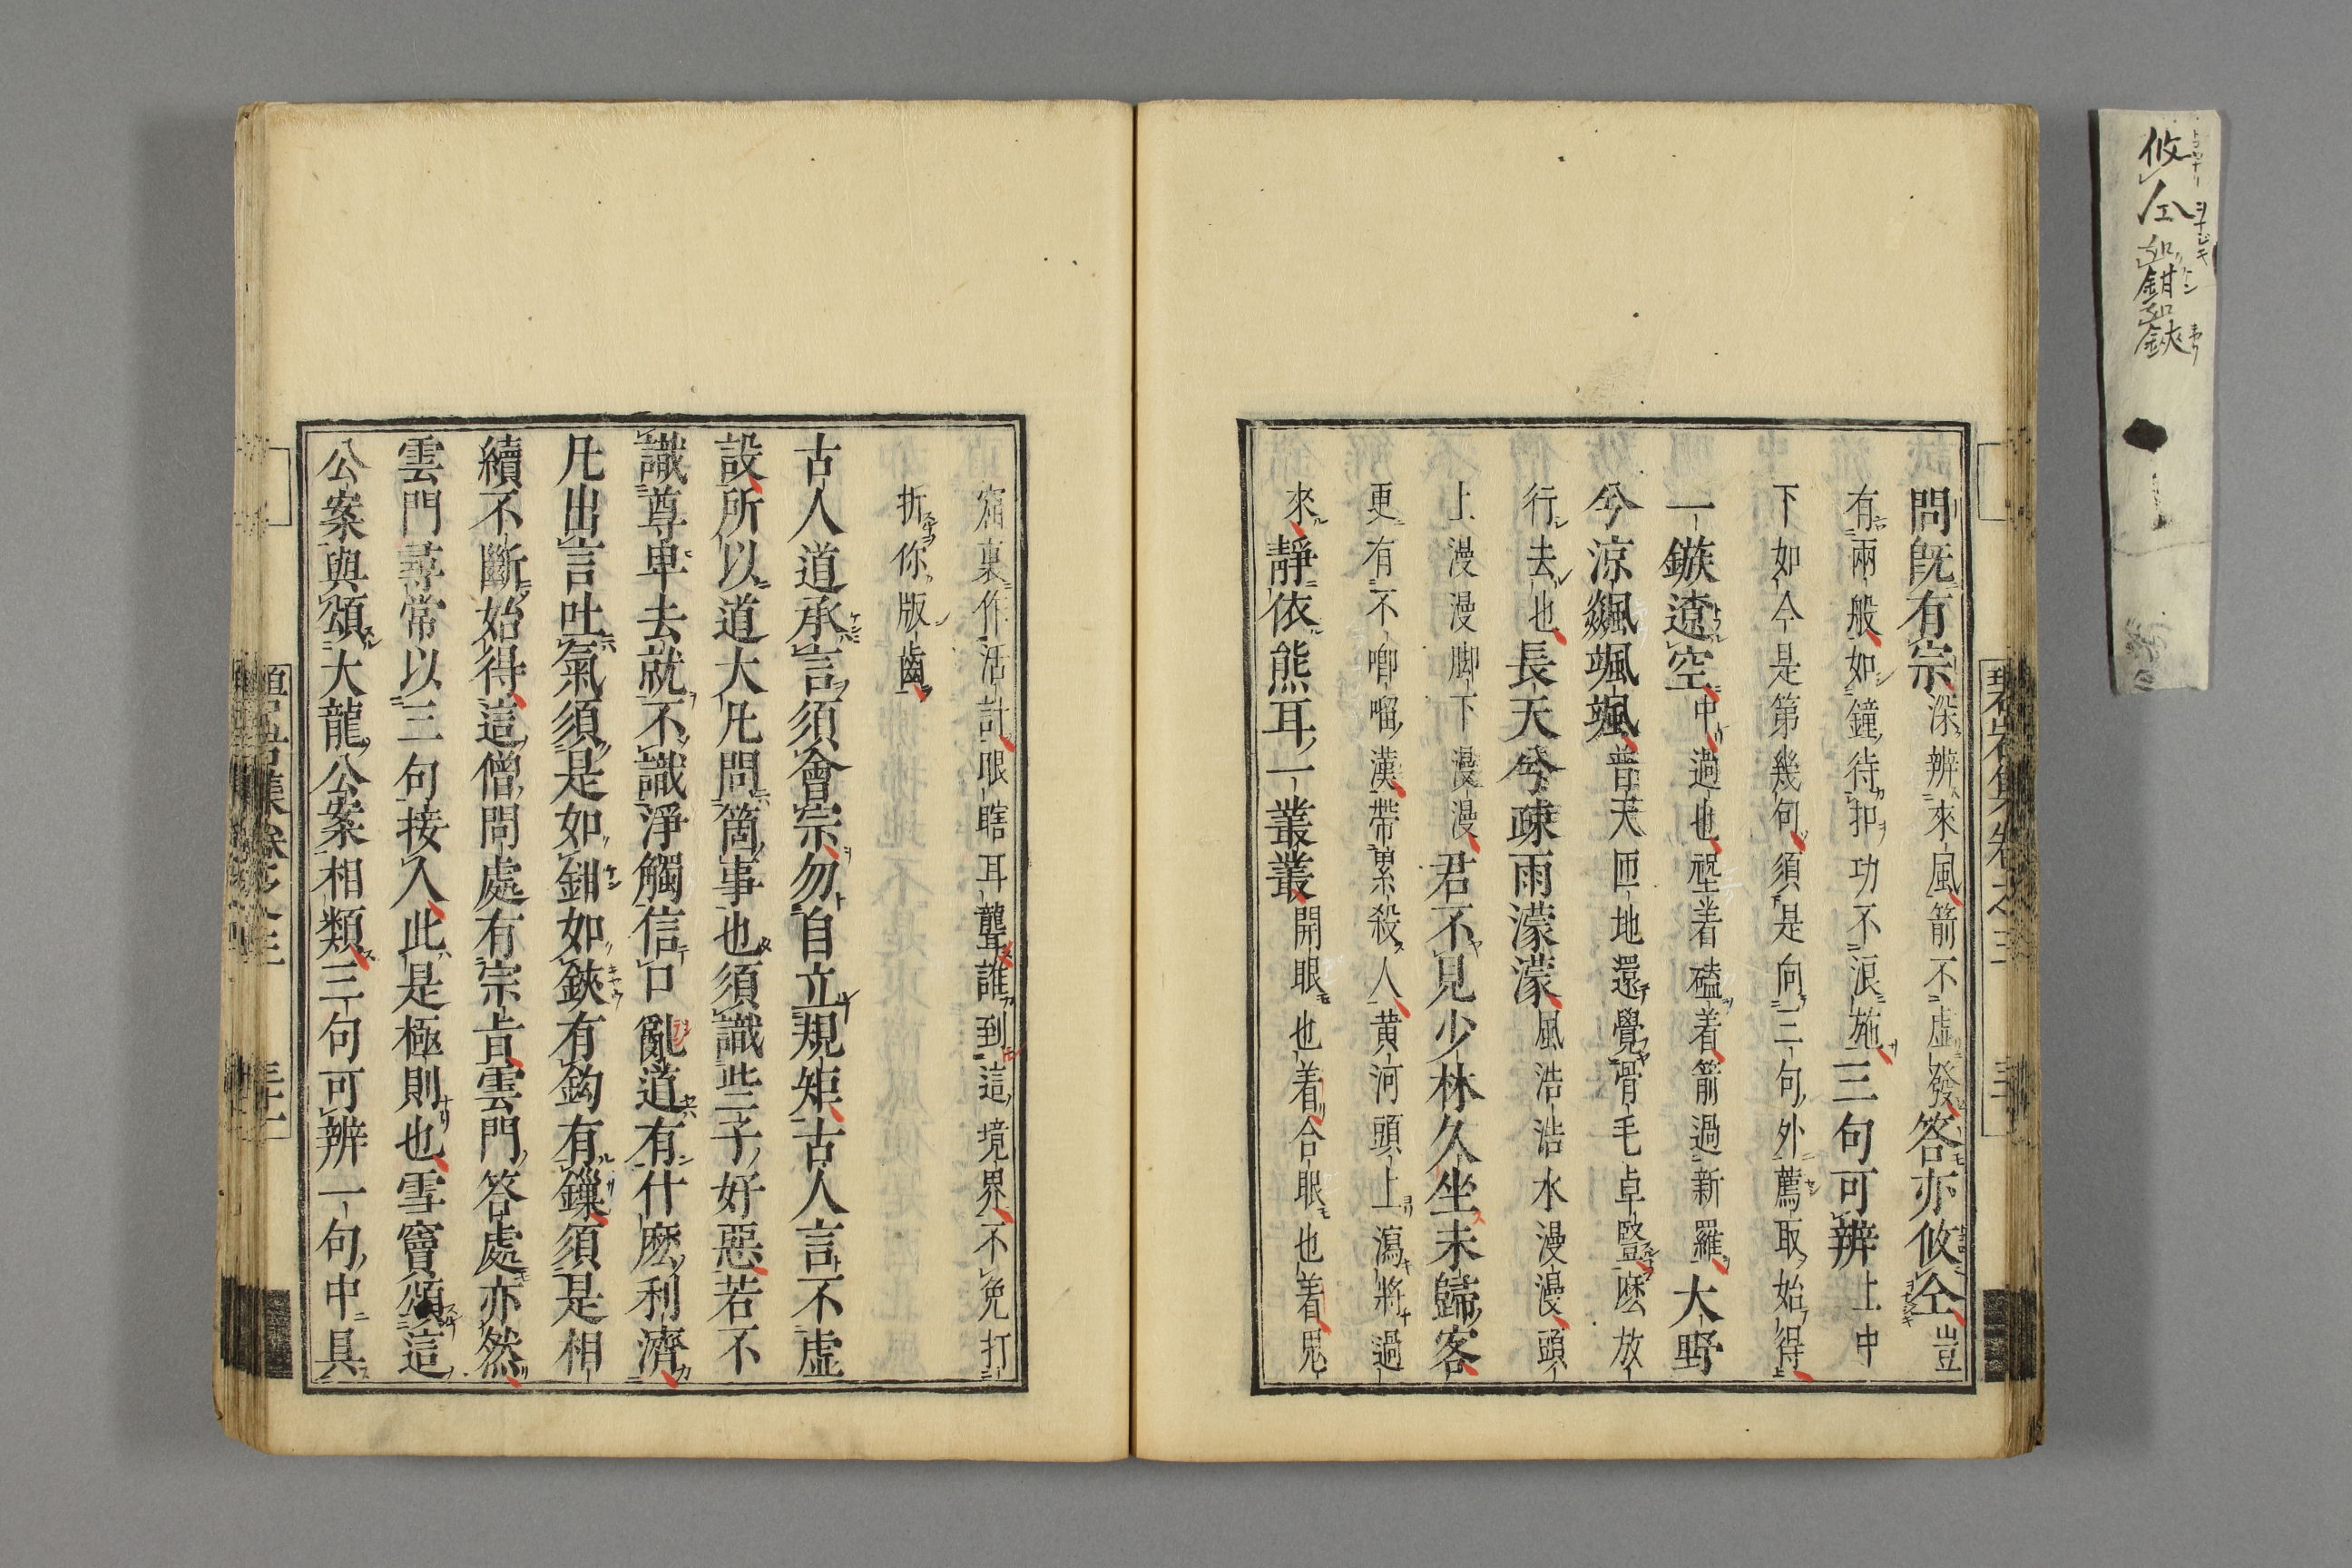 問旣有宗深辨來風箭不虛發答亦攸仝豈
有兩般如鐘待扣功不浪施三句可辨上中
下如今是第幾句須是向三句外薦取始得
一鏃遼空中過也𡎺着磕着箭過新羅大野
兮涼飇颯颯普天匝地還覺骨毛卓豎麽放
行去也長天兮疎雨濛濛風浩浩水漫漫頭
上漫漫脚下漫漫君不見少林久坐未歸客
更有不喞㗰漢帶累殺人黃河頭上瀉將過
來靜依熊耳一叢叢開眼也着合眼也着鬼
窟裏作活計眼瞎耳聾誰到這境界不免打
折你版齒
古人道承言須會宗勿自立規矩古人言不虛
設所以道大凡問箇事也須識些子好惡若不
識尊卑去就不識淨觸信口亂道有什麽利濟
凡出言吐氣須是如鉗如鋏有鈎有鏁須是相
續不斷始得這僧問處有宗旨雲門答處亦然
雲門尋常以三句接人此是極則也雪竇頌這
公案與頌大龍公案相類三句可辨一句中具
碧岩集卷之三
攸仝如鉗如鋏